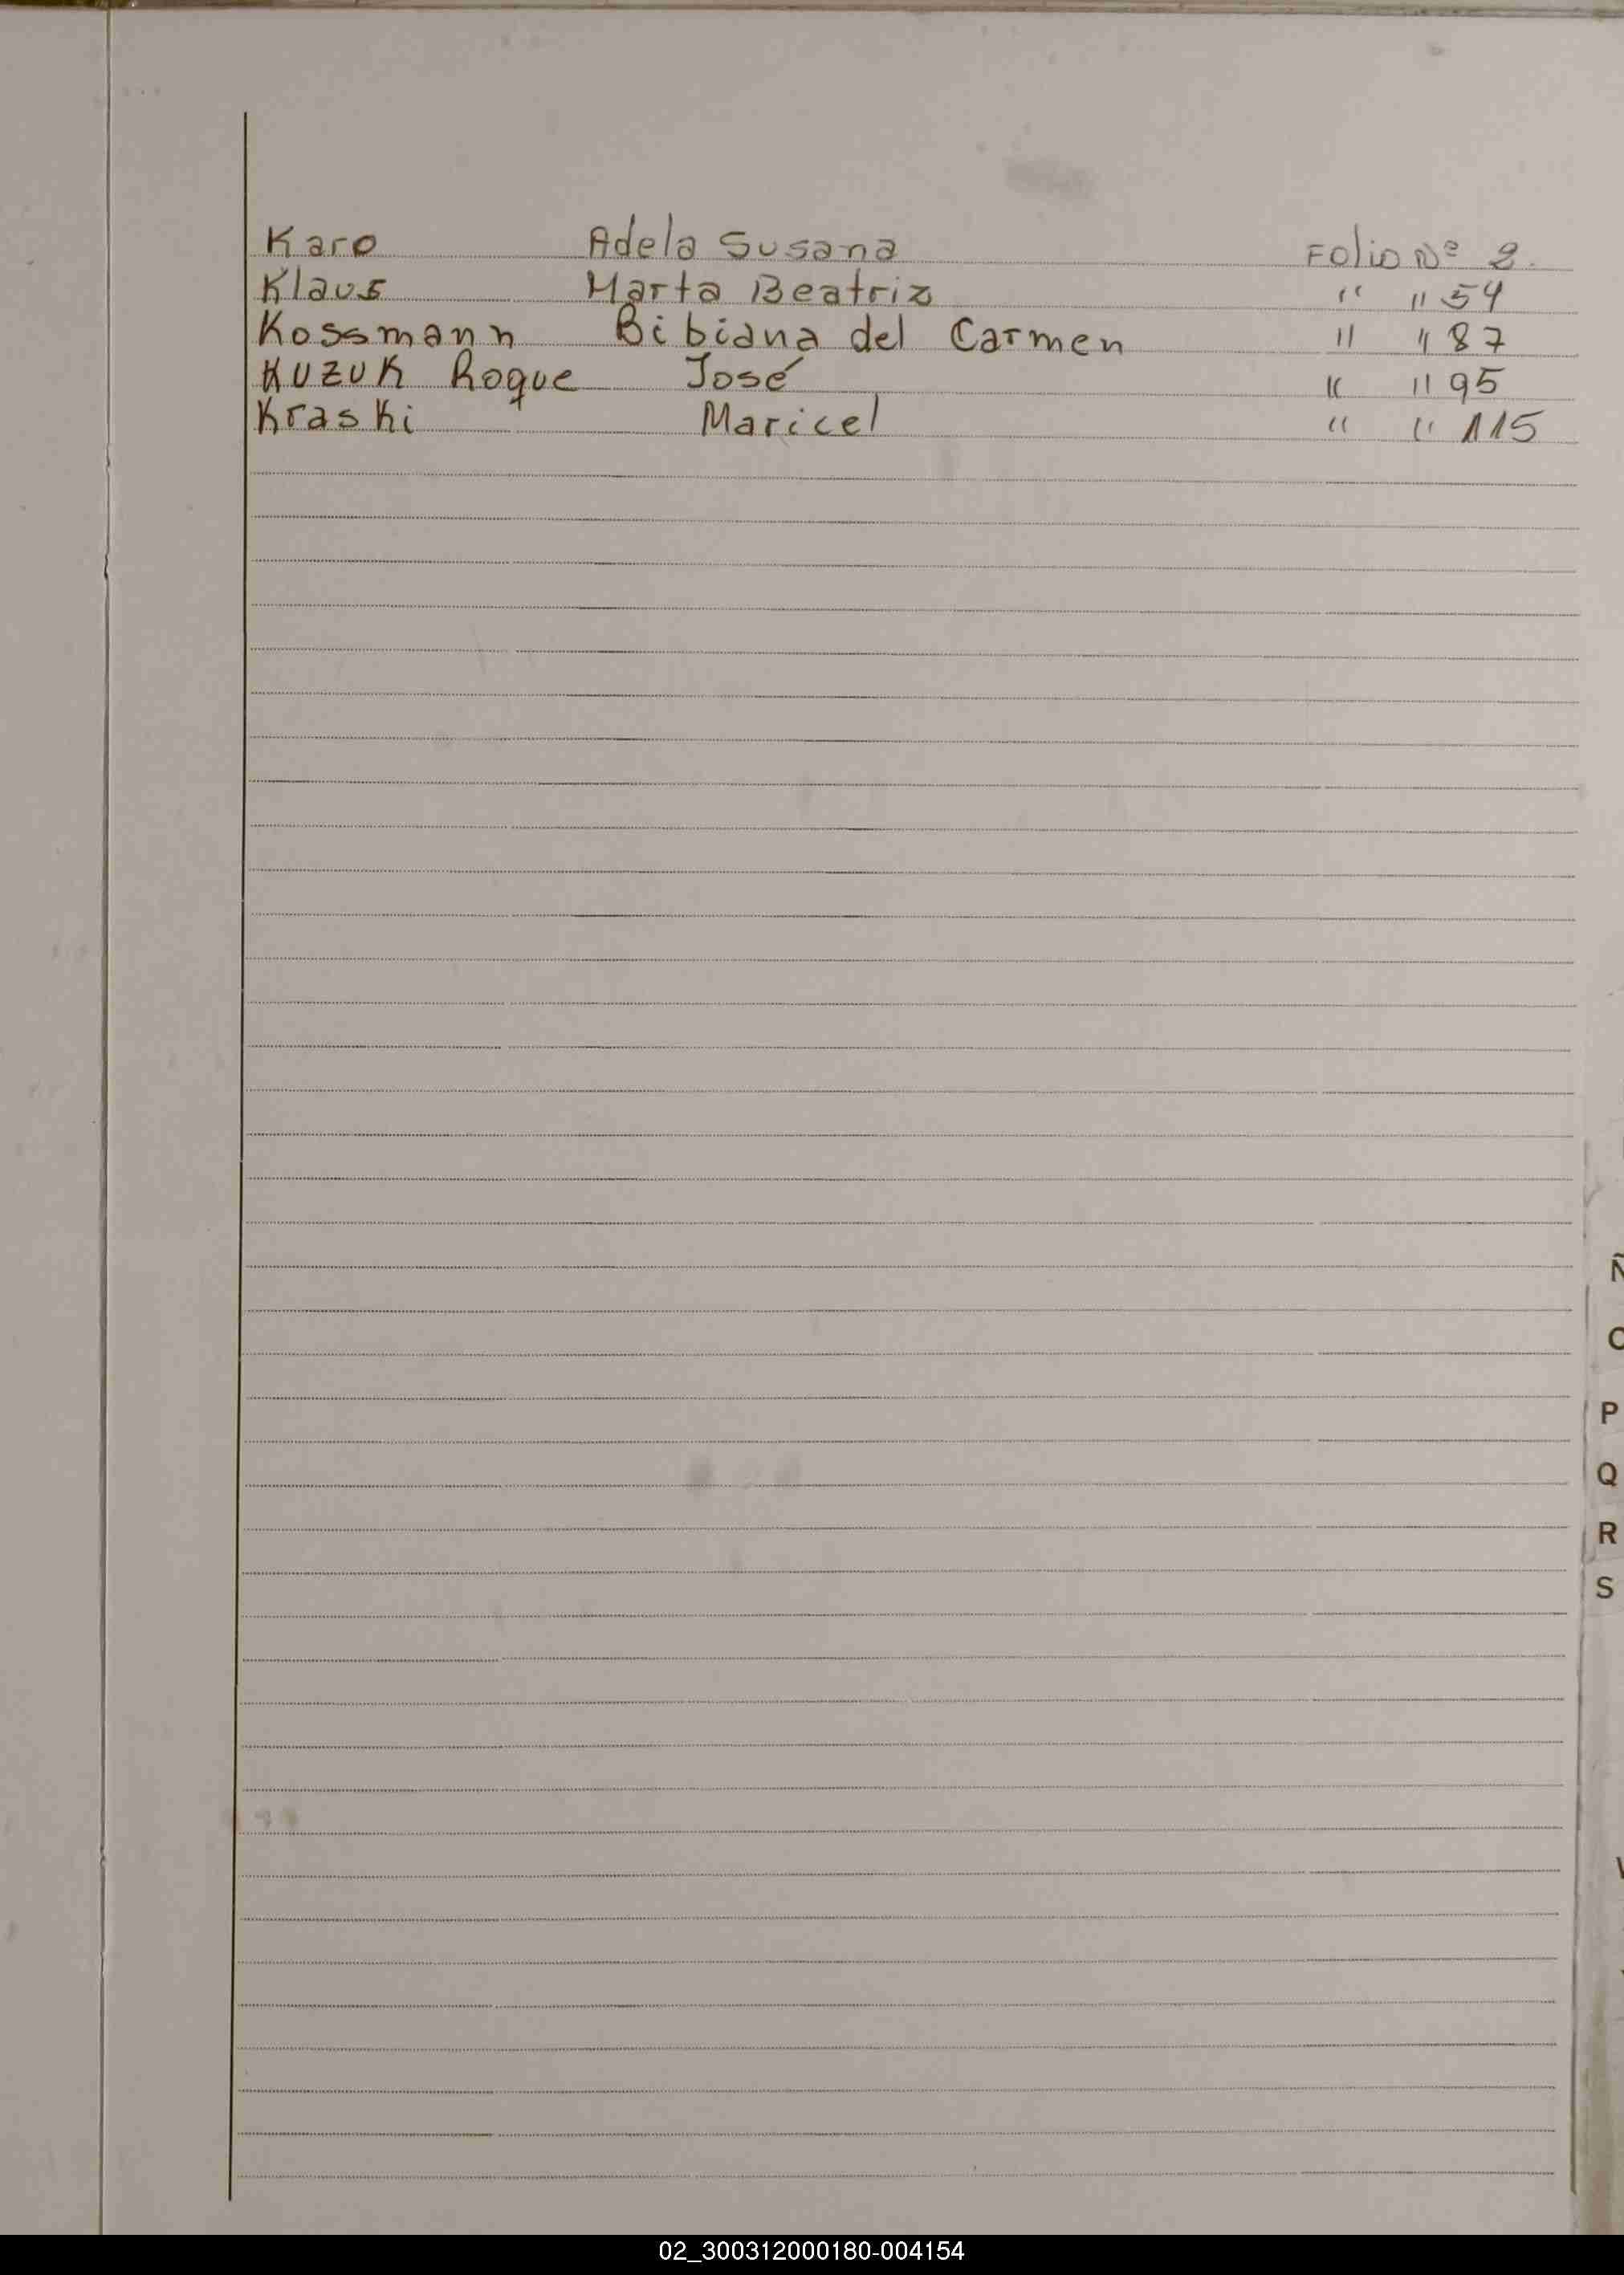 Karo Adela Susana Folio Nº 2.
Klaus Marta Beatriz " " 54
Kossmann Bibiana del Carmen " " 87
Kuzuk Roque José " " 95
Kraski Maricel " " 115
Ñ
O
P
Q
R
S
02_300312000180-004154